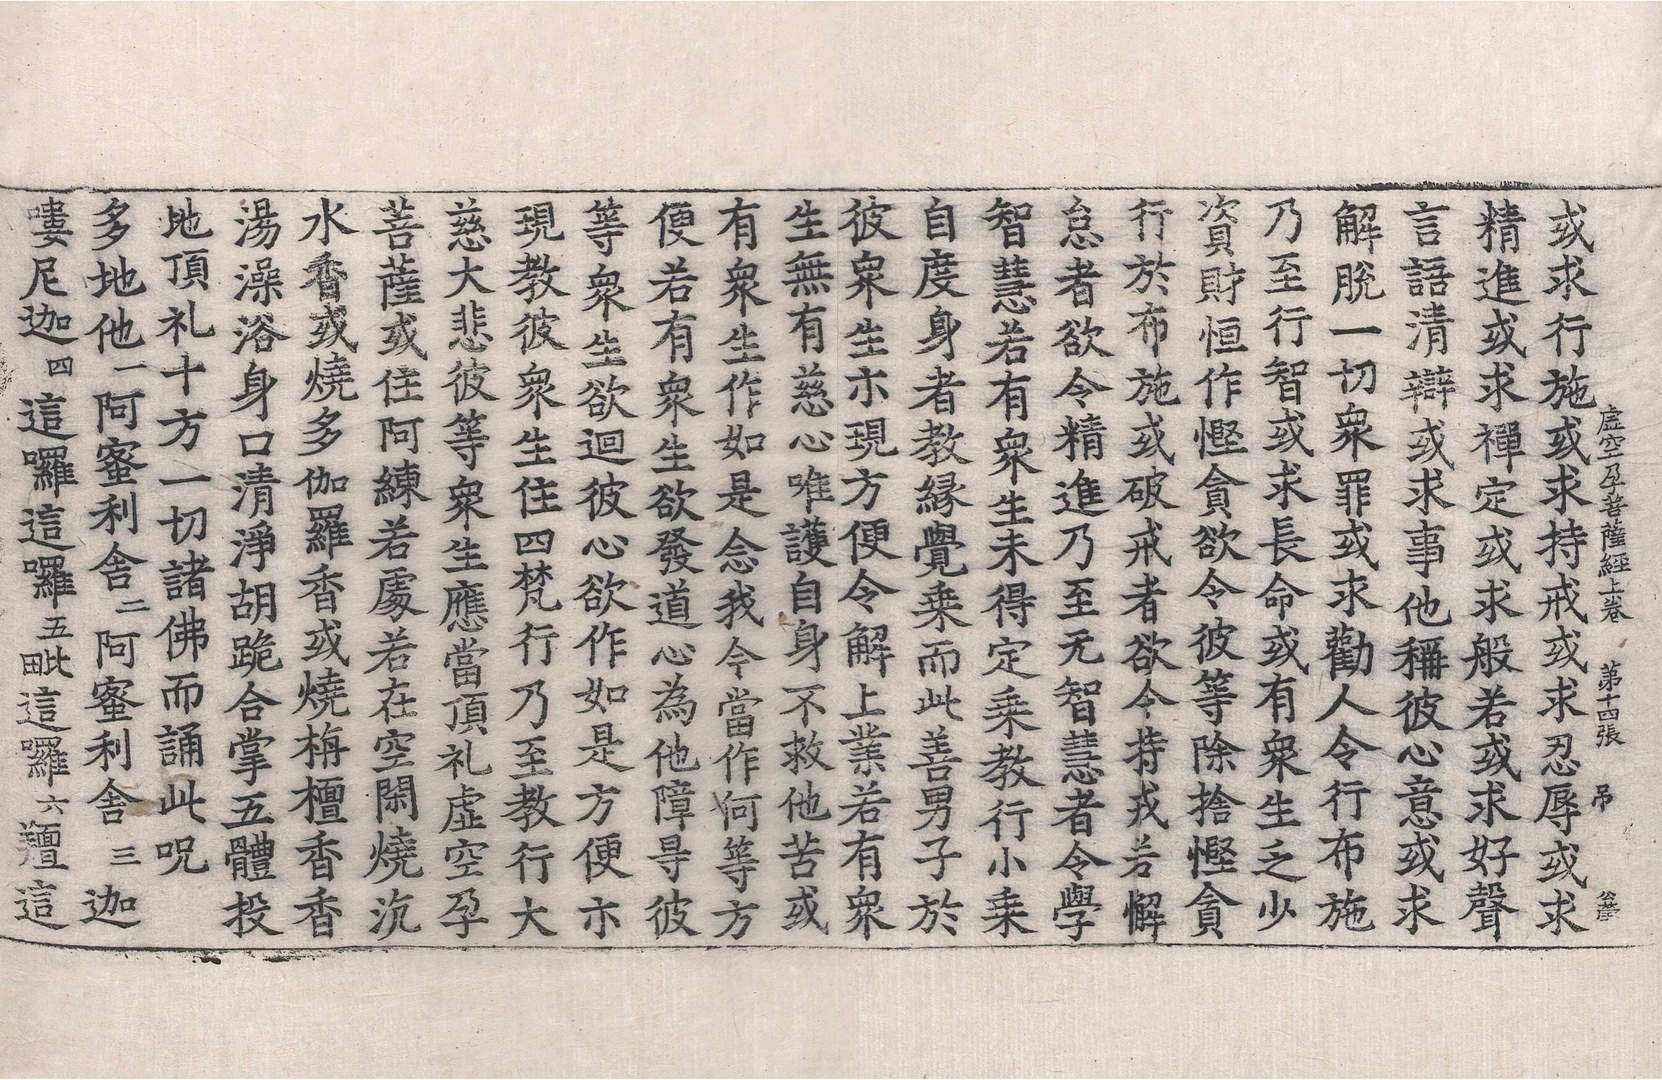 虛空孕菩薩經上卷　第十四張　吊
或求行施或求持戒或求忍辱或求
精進或求禪定或求般若或求好聲
言語清辯或求事他稱彼心意或求
解脫一切衆罪或求勸人令行布施
乃至行智或求長命或有衆生乏少
資財恒作慳貪欲令彼等除捨慳貪
行於布施或破戒者欲令持戒若懈
怠者欲令精進乃至无智慧者令學
智慧若有衆生未得定乘教行小乘
自度身者教緣覺乘而此善男子於
彼衆生亦現方便令解上業若有衆
生無有慈心唯護自身不救他苦或
有衆生作如是念我今當作何等方
便若有衆生欲發道心為他障㝵彼
等衆生欲迴彼心欲作如是方便亦
現教彼衆生住四梵行乃至教行大
慈大悲彼等衆生應當頂礼虛空孕
菩薩或住阿練若處若在空閑燒沉
水香或燒多伽羅香或燒栴檀香香
湯澡浴身口清淨胡跪合掌五體投
地頂礼十方一切諸佛而誦此呪
多地他一阿蜜利舍二阿蜜利舍三迦
嘍尼迦四這囉這囉五毗𤰞這囉六羶這